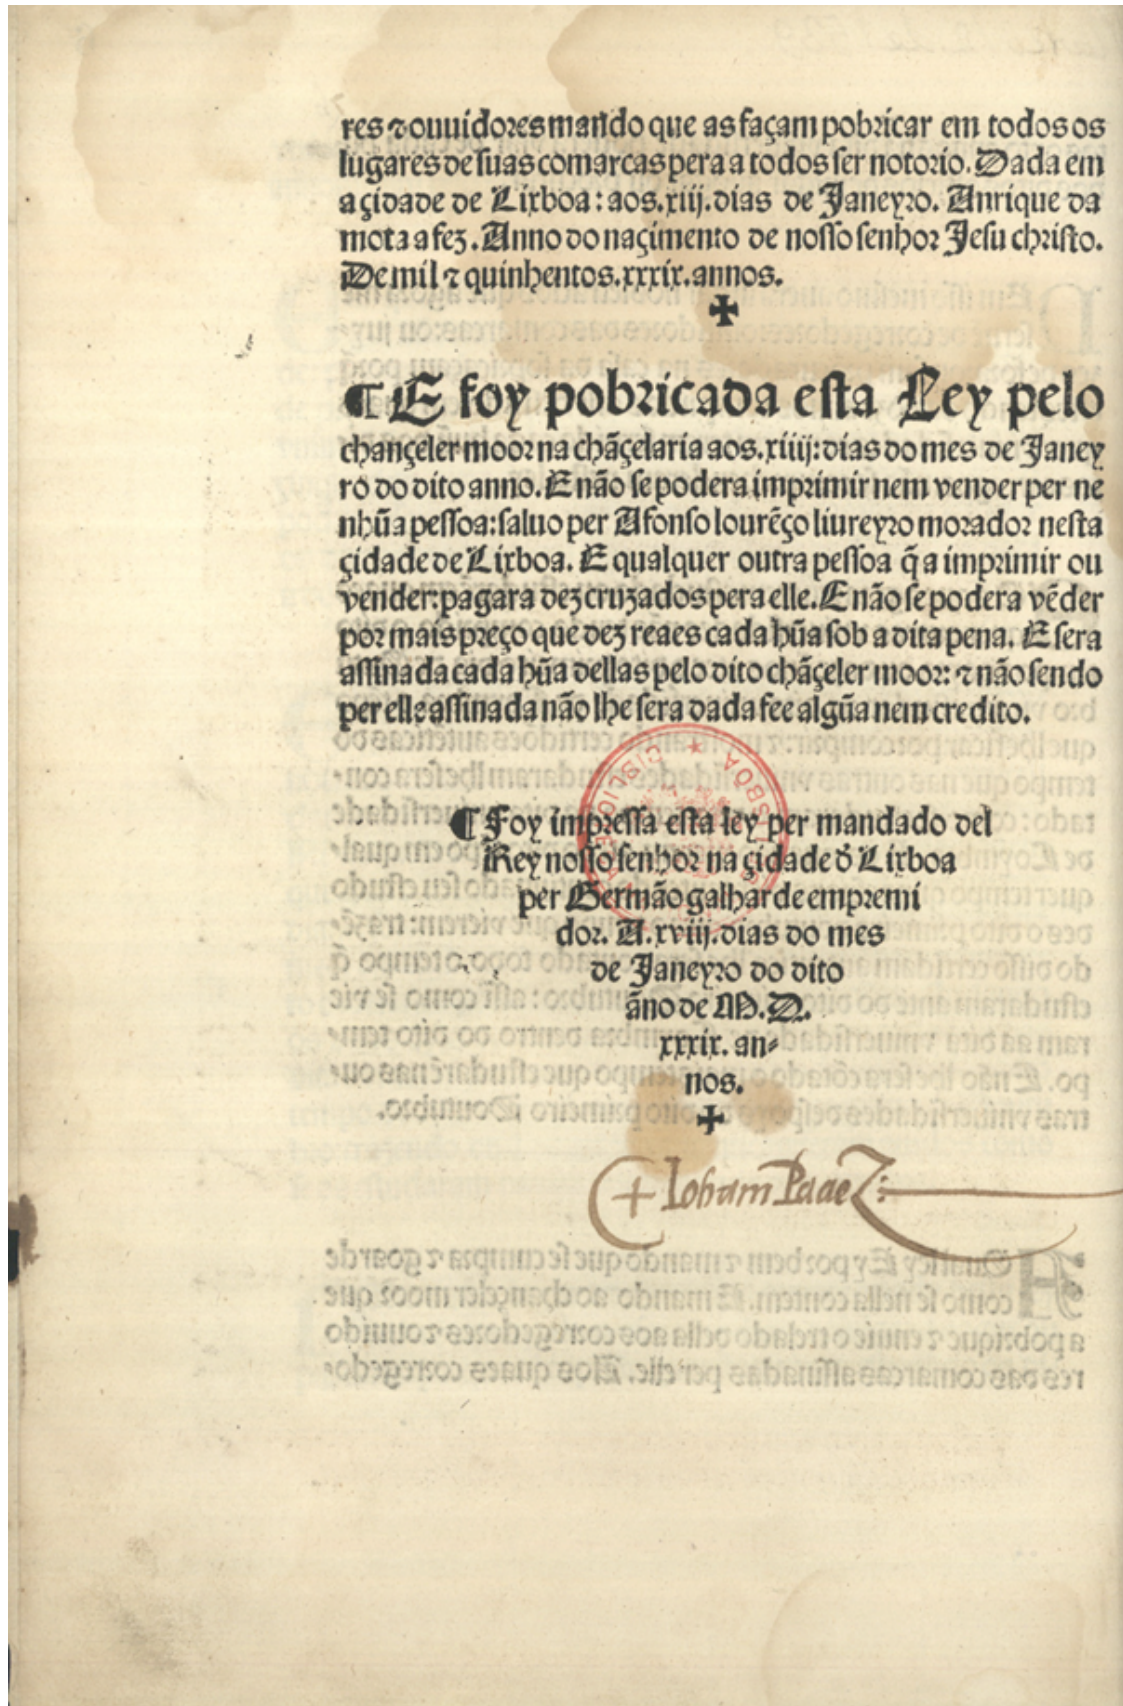 res ⁊ ouuidores mando que as façam pobricar em todos os
lugares de suas comarcas pera a todos ser notorio. Dada em
a çidade de Lixboa: aos .xiij. dias de Janeyro. Anrique da
mota a fez. Anno do naçimento de nosso senhor Jesu christo.
De mil ⁊ quinhentos .xxxix. annos.
✠
¶ E foy pobricada esta Ley pelo
chançeler moor na chãçelaria aos .xiiij: dias do mes de Janey
ro do dito anno. E não se podera imprimir nem vender per ne
nhũa pessoa: saluo per Afonso lourẽço liureyro morador nesta
çidade de Lixboa. E qualquer outra pessoa q̃ a imprimir ou
vender: pagara dez cruzados pera elle. E não se podera vẽder
por mais preço que dez reaes cada hũa sob a dita pena. E sera
assinada cada hũa dellas pelo dito chãçeler moor: ⁊ não sendo
per elle assinada não lhe sera dada fee algũa nem credito.
¶ Foy impressa esta ley per mandado del
Rey nosso senhor na çidade d̃ Lixboa
per Germão galharde empremi
dor. A .xviij. dias do mes
de Janeyro do dito
ãno de M.D.
xxxix. an-
nos.
✠
Ioham Paaez: